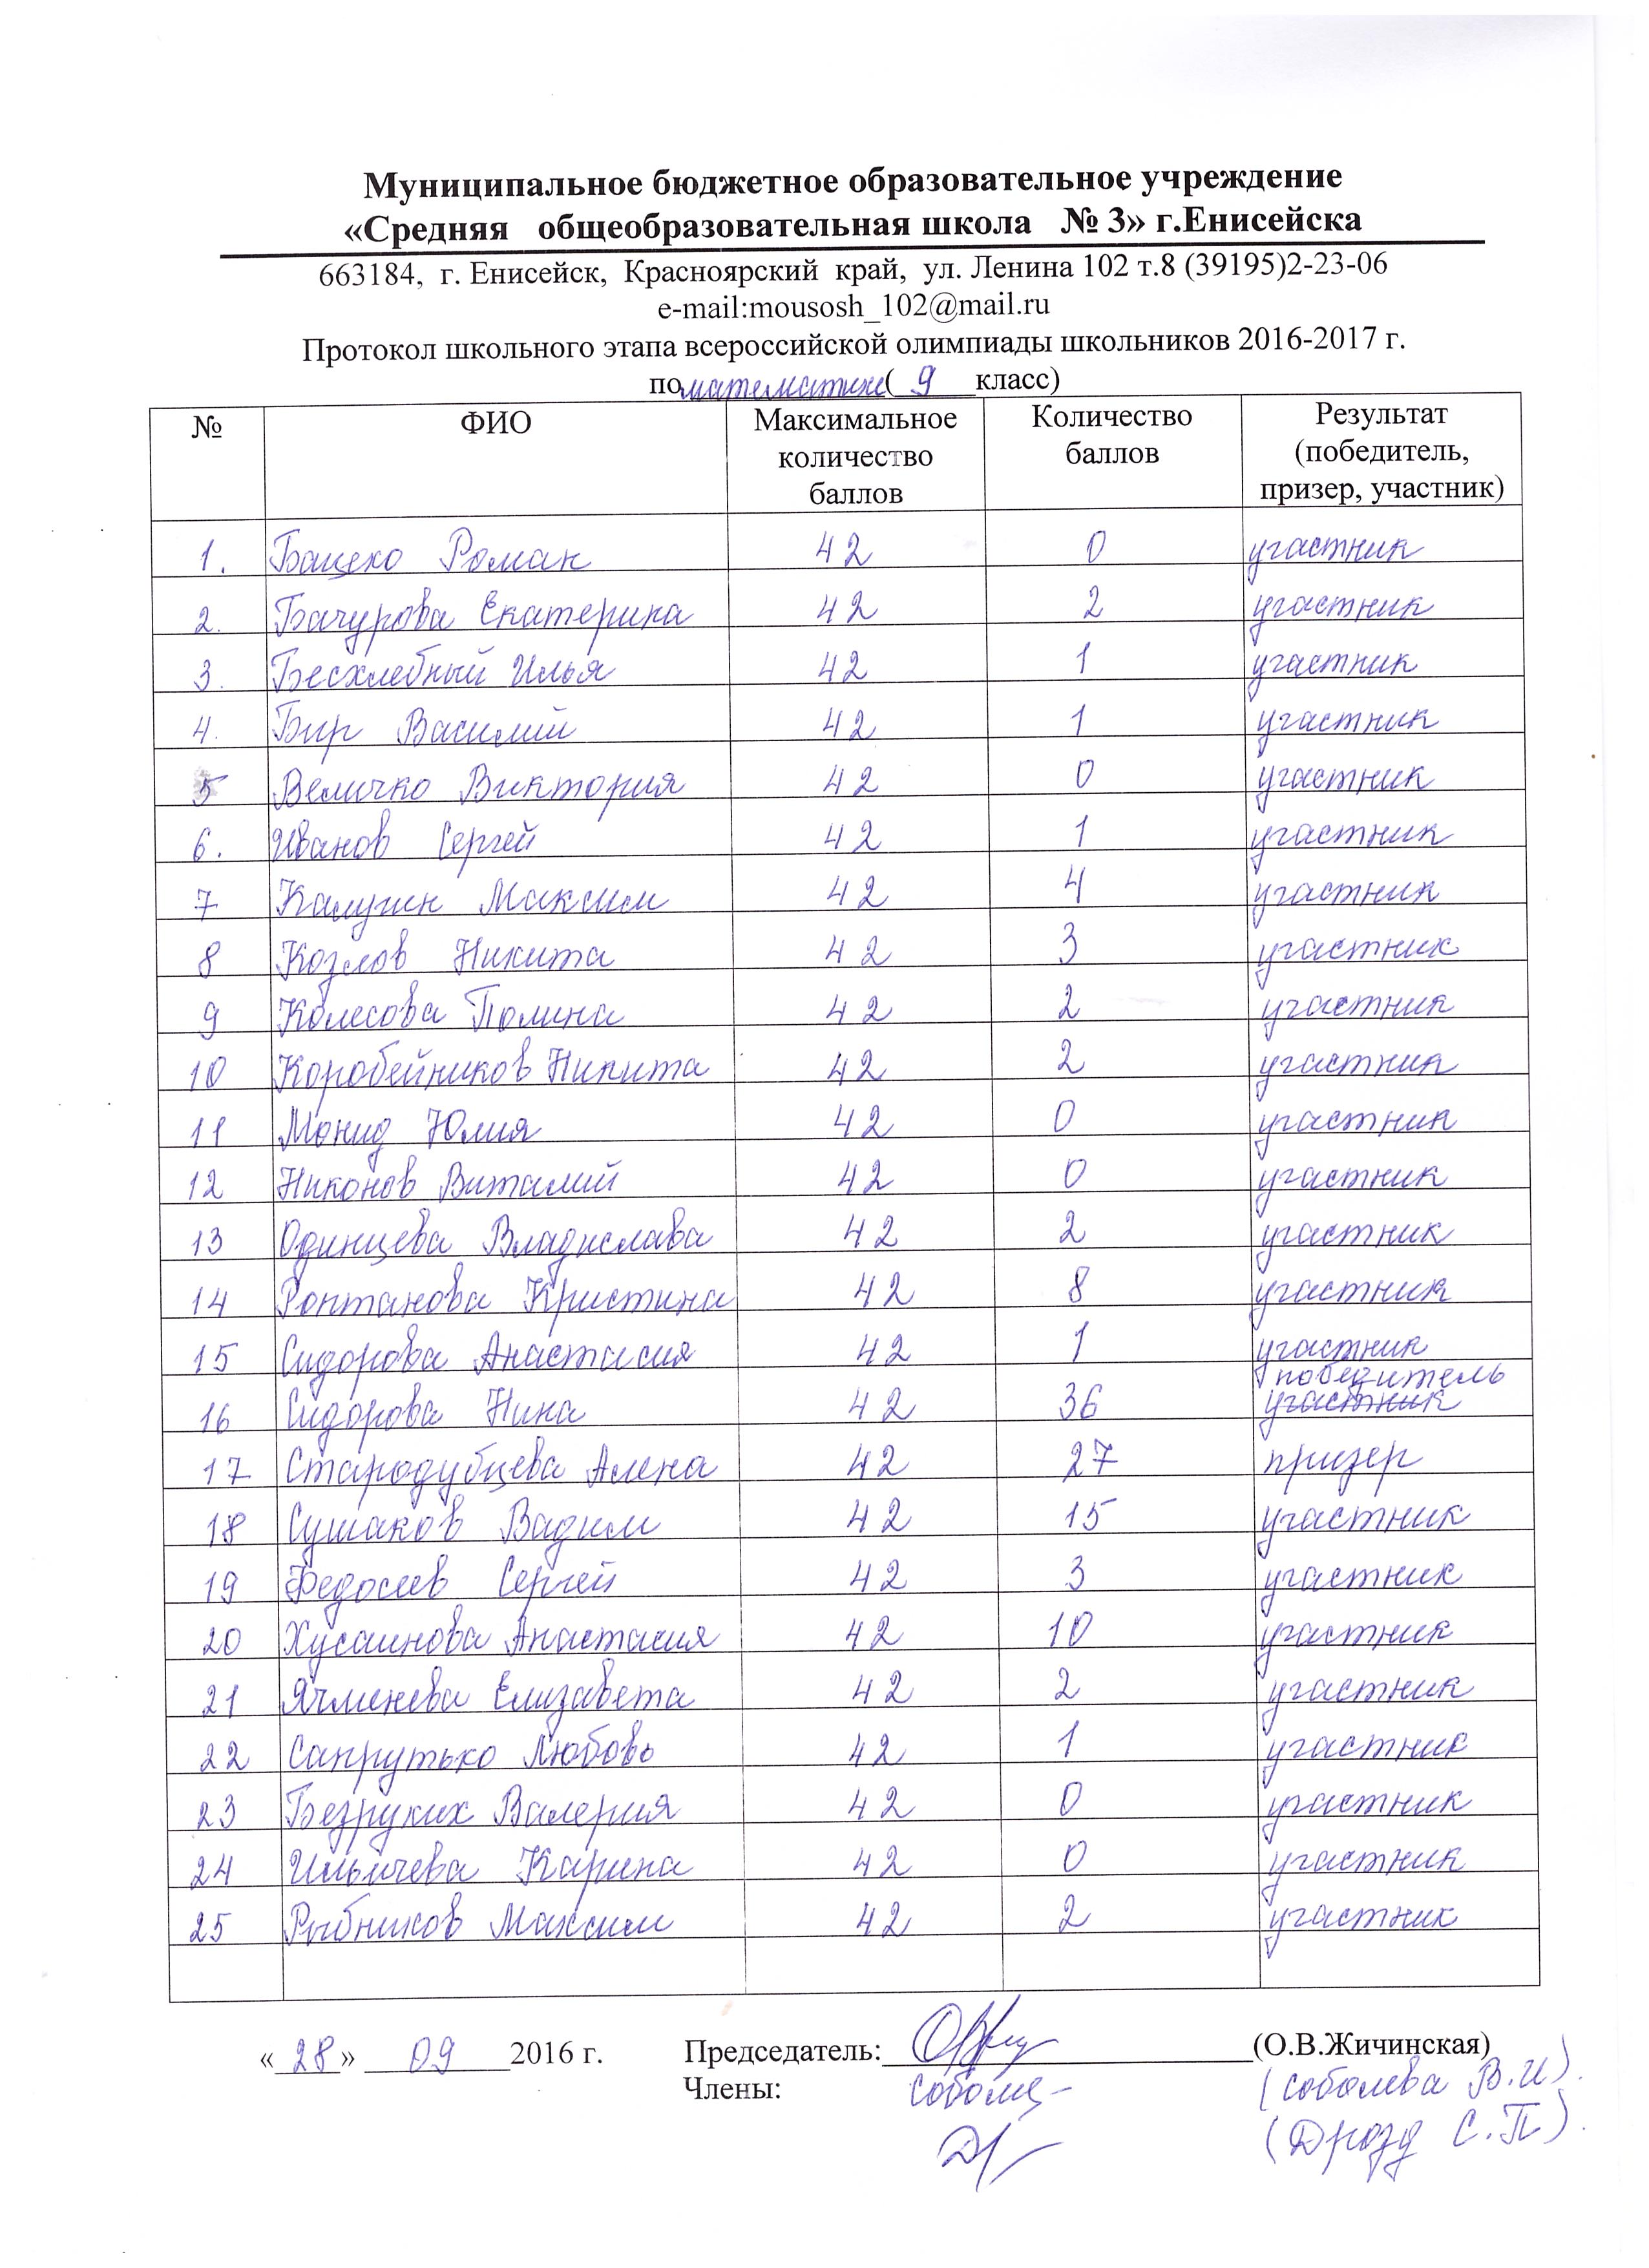 Муниципальное бюджетное образовательное учреждение
«Средняя общеобразовательная школа № 3» г.Енисейска
663184, г. Енисейск, Красноярский край, ул. Ленина 102 т.8 (39195)2-23-06
e-mail:mousosh_102@mail.ru
Протокол школьного этапа всероссийской олимпиады школьников 2016-2017 г.
по математике ( 9 класс)
№ ФИО Максимальное количество баллов Количество баллов Результат (победитель, призер, участник)
1. Бацеко Роман 42 0 участник
2. Бачурова Екатерина 42 2 участник
3. Бесхлебный Илья 42 1 участник
4. Бир Василий 42 1 участник
5 Величко Виктория 42 0 участник
6. Иванов Сергей 42 1 участник
7 Калугин Максим 42 4 участник
8 Козлов Никита 42 3 участник
9 Колесова Полина 42 2 участник
10 Коробейников Никита 42 2 участник
11 Монид Юлия 42 0 участник
12 Никонов Виталий 42 0 участник
13 Одинцева Владислава 42 2 участник
14 Роптанова Кристина 42 8 участник
15 Сидорова Анастасия 42 1 участник
16 Сидорова Нина 42 36 победитель участник
17 Стародубцева Алена 42 27 призер
18 Сушаков Вадим 42 15 участник
19 Федосеев Сергей 42 3 участник
20 Хусаинова Анастасия 42 10 участник
21 Ячменева Елизавета 42 2 участник
22 Сапрутько Любовь 42 1 участник
23 Безруких Валерия 42 0 участник
24 Ильичева Карина 42 0 участник
25 Рыбников Максим 42 2 участник
« 28 » 09 2016 г. Председатель: (О.В.Жичинская)
Члены: (Соболева В.И).
(Дрозд С.П).